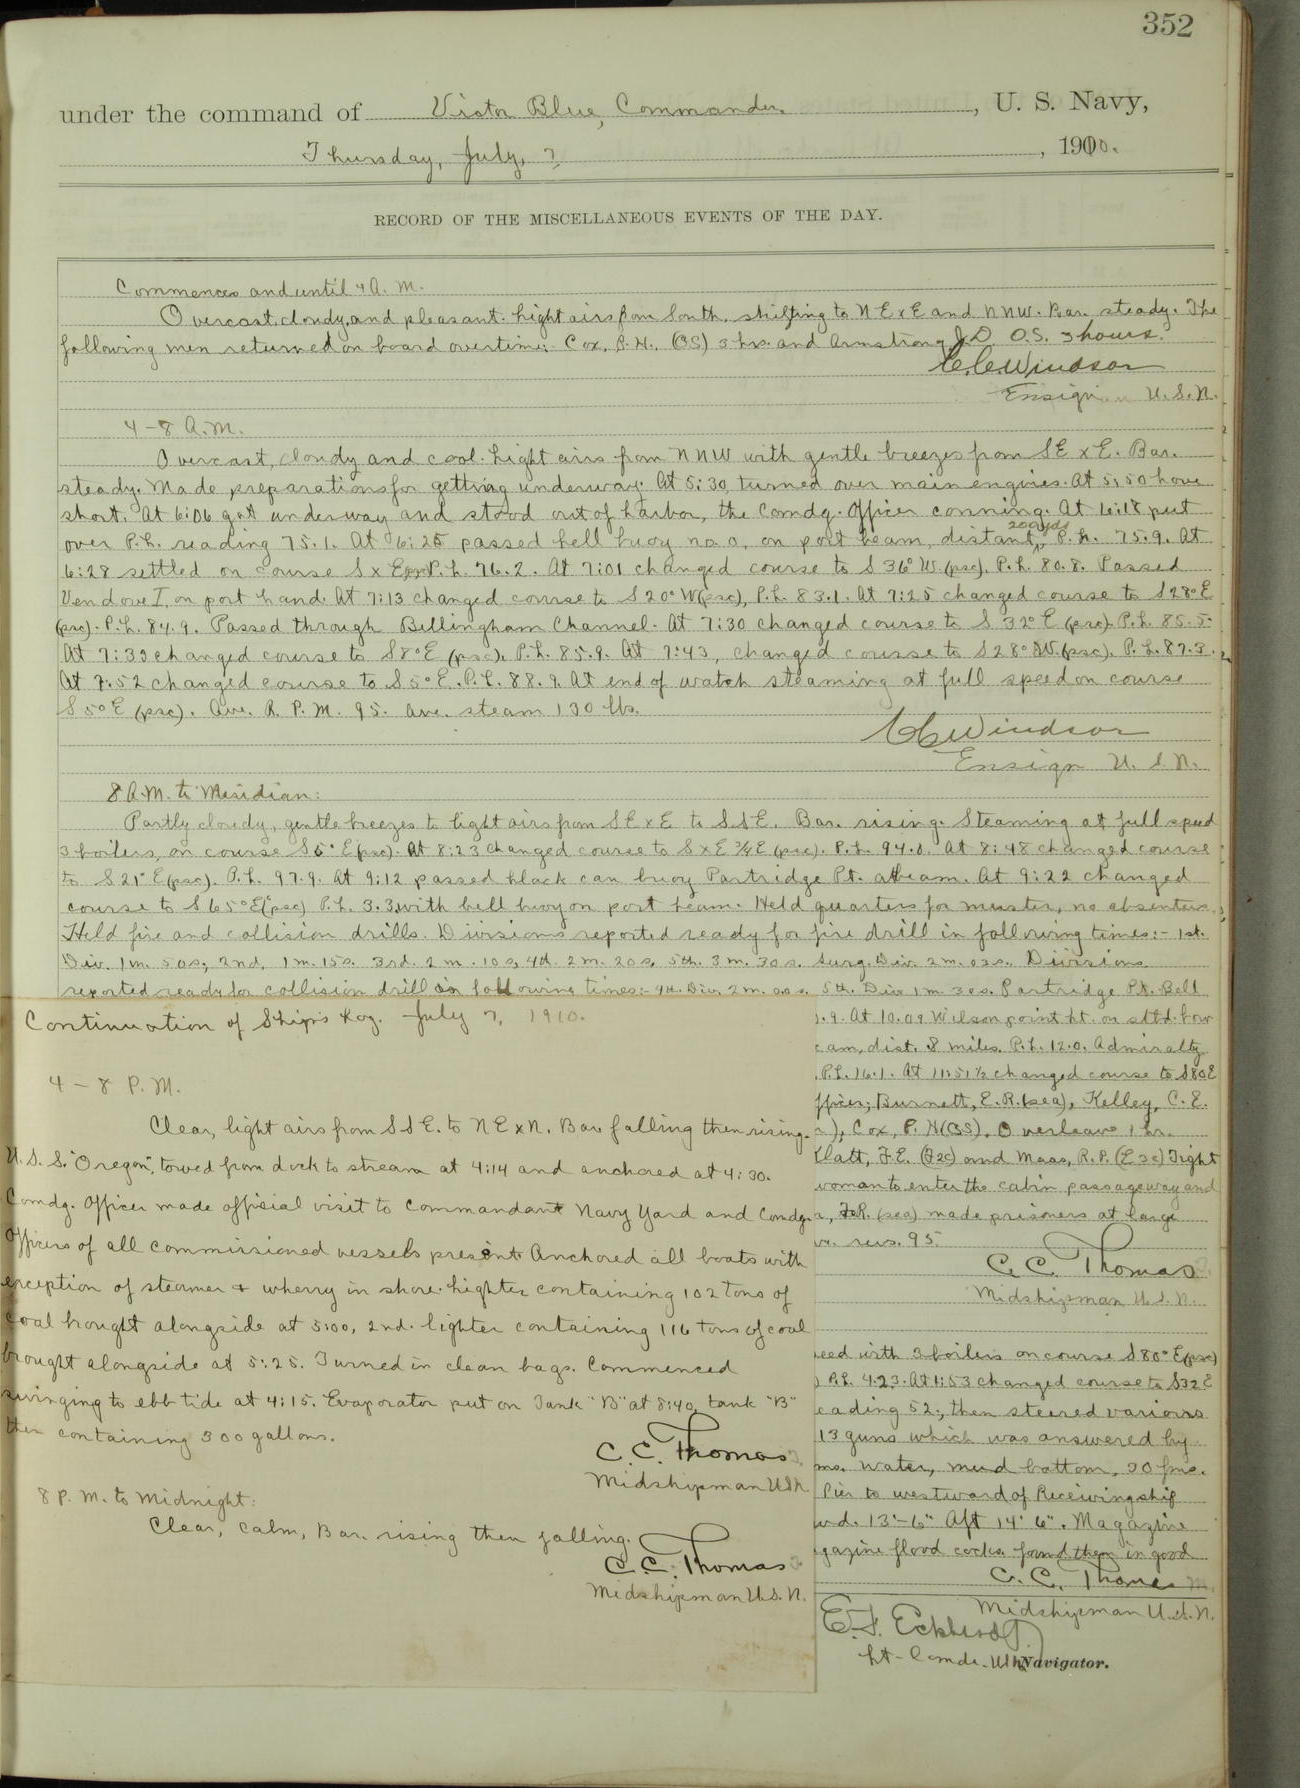 352
under the command of Victor Blue, Commander, U. S. Navy,
Thursday, July, 7, 1910.
RECORD OF THE MISCELLANEOUS EVENTS OF THE DAY.
Commences and until 4 A. M.
Overcast, cloudy, and pleasant. Light airs from South, shifting to N E x E and N N W. Bar. steady. The
following men returned on board overtime:- Cox, P. H., (BS) 3 hrs. and Armstrong J. D. O.S. 3 hours.
C. C. Windsor
Ensign U. S. N.
4 - 8 A. M.
Overcast, cloudy and cool. Light airs from N N W with gentle breezes from S E x E. Bar.
steady. Made preparations for getting underway. At 5:30, turned over main engines. At 5:50 hove
short. At 6:06 got underway and stood out of harbor, the Comdg. Officer conning. At 6:18 put
over P. L. reading 75.1. At 6:25 passed bell buoy no. 0, on port beam, distant 200 yds P. L. 75.9. At
6:28 settled on course S x E P. L. 76.2. At 7:01 changed course to S 36° W. (psc). P. L. 80.8. Passed
Vendove I. on port hand. At 7:13 changed course to S 20° W (psc), P. L. 83.1. At 7:25 changed course to S 28° E
(psc). P. L. 84.9. Passed through Bellingham Channel. At 7:30 changed course to S 32° E (psc). P. L. 85.5.
At 7:33 changed course to S 8° E (psc). P. L. 85.9. At 7:43, changed course to S 28° W. (psc). P. L. 87.3.
At 7:52 changed course to S 5° E. P. L. 88.9. At end of watch steaming at full speed on course
S 5° E (psc). Ave. R. P. M. 95. Ave. steam 130 lbs.
C C Windsor
Ensign U. S. N.
8 A. M. to Meridian:
Partly cloudy, gentle breezes to light airs from S E x E to S S E. Bar. rising. Steaming at full speed
3 boilers, on course S 5° E (psc). At 8:23 changed course to S x E ¾ E (psc). P. L. 94.0. At 8:48 changed course
to S 21° E (psc). P. L. 97.9. At 9:12 passed black can buoy Partridge Pt. abeam. At 9:22 changed
course to S 65° E (psc) P. L. 3.3, with bell buoy on port beam. Held quarters for muster, no absentees.
Held fire and collision drills. Divisions reported ready for fire drill in following times:- 1st.
Div. 1 m. 50 s; 2nd. 1 m. 15 s. 3rd. 2 m. 10 s, 4th. 2 m. 20 s. 5th. 3 m. 30 s. Surg. Div. 2 m. 02 s. Divisions
reported ready for collision drill in following times:- 4th. Div. 2 m. 00 s. 5th. Div 1 m. 30 s. Partridge Pt. Bell
.9. At 10.09 Wilson point lt. on stbd. bow
eam, dist. 8 miles. P. L. 12.0. Admiralty
. P. L. 16.1. At 11:51½ changed course to S 80 E
fficer; Burnett, E. R. (sea), Kelley, C. E.
), Cox, P. H (BS). Overleave 1 hr.
Klatt, F. E. (F2c) and Maas, R. P. (E3c) Fight
woman to enter the cabin passageway and
(sea) made prisoners at large
revs. 95.
C. C. Thomas.
Midshipman U. S. N.
eed with 3 boilers on course S 80° E (psc)
) P. L. 4.23. At 1:53 changed course to S 32 E
eading 52., then steered various
13 guns which was answered by
ms. water, mud bottom, 30 fms.
Pier to westward of Receivingship
wd. 13'-6" Aft 14' 6". Magazine
gazine flood cocks found them in good
C. C. Thomas
Midshipman U. S. N.
E. F. Eckhardt
Lt-Comdr. USN Navigator.
Continuation of Ship's Log. July 7, 1910.
4 - 8 P. M.
Clear, light airs from S S E. to N E x N. Bar falling then rising.
U. S. S. "Oregon", towed from dock to stream at 4:14 and anchored at 4:30.
Comdg. Officer made official visit to Commandant Navy Yard and Comdg.
Officers of all commissioned vessels present. Anchored all boats with
exception of steamer & wherry in shore. Lighter containing 102 tons of
coal brought alongside at 5:00, 2nd. lighter containing 116 tons of coal
brought alongside at 5:25. Turned in clean bags. Commenced
swinging to ebb tide at 4:15. Evaporator put on Tank "B" at 8:40, tank "B"
then containing 300 gallons.
C. C. Thomas
Midshipman USN.
8 P. M. to Midnight:
Clear, calm, Bar. rising then falling.
C. C. Thomas
Midshipman U. S. N.